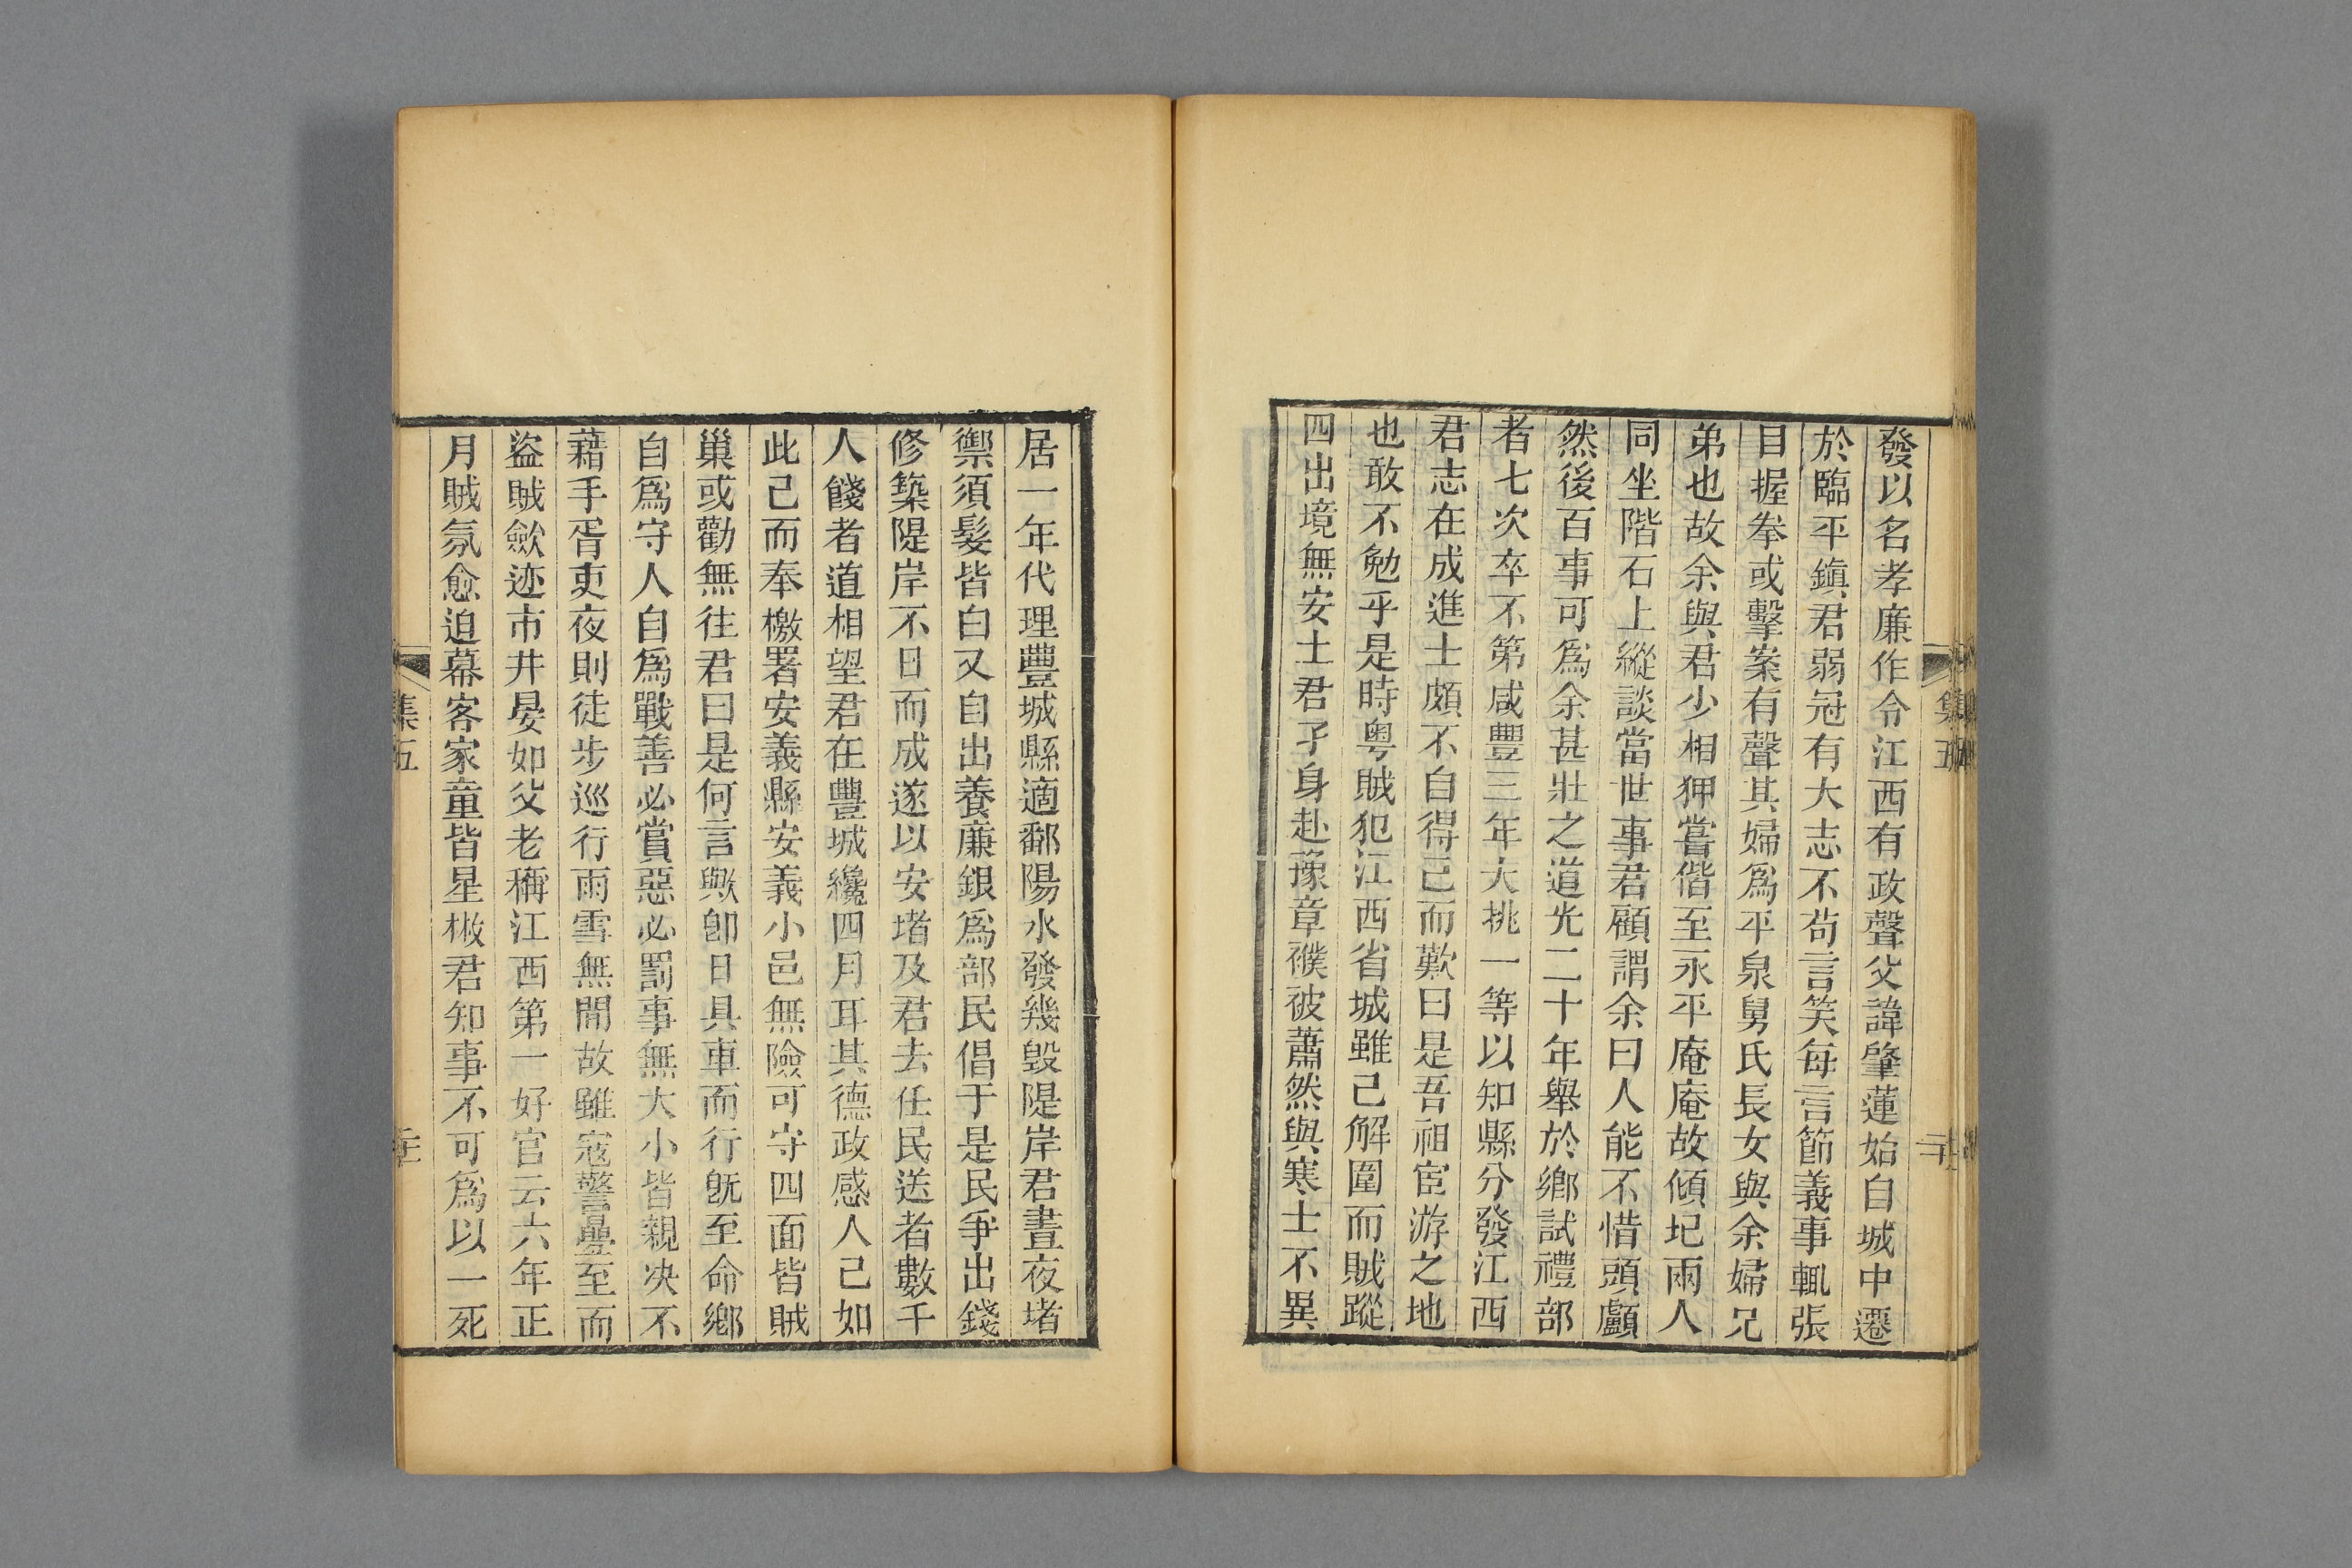 發以名孝廉作令江西有政聲父諱肇蓮始自城中遷
於臨平鎮君弱冠有大志不苟言笑每言節義事輒張
目握拳或擊案有聲其婦爲平泉舅氏長女與余婦兄
弟也故余與君少相狎嘗偕至永平庵庵故傾圮兩人
同坐階石上縱談當世事君顧謂余曰人能不惜頭顱
然後百事可爲余甚壯之道光二十年舉於鄉試禮部
者七次卒不第咸豐三年大挑一等以知縣分發江西
君志在成進士頗不自得已而歎曰是吾祖宦游之地
也敢不勉乎是時粵賊犯江西省城雖已解圍而賊蹤
四出境無安土君孑身赴豫章襆被蕭然與寒士不異
集五
居一年代理豐城縣適鄱陽水發幾毀隄岸君晝夜堵
禦須髮皆白又自出養廉銀爲部民倡于是民爭出錢
修築隄岸不日而成遂以安堵及君去任民送者數千
人餞者道相望君在豐城纔四月耳其德政感人已如
此已而奉檄署安義縣安義小邑無險可守四面皆賊
巢或勸無往君曰是何言歟卽日具車而行旣至命鄉
自爲守人自爲戰善必賞惡必罰事無大小皆親決不
藉手胥吏夜則徒步巡行雨雪無閒故雖寇警疊至而
盜賊歛迹市井晏如父老稱江西第一好官云六年正
月賊氛愈迫幕客家童皆星散君知事不可爲以一死
集五